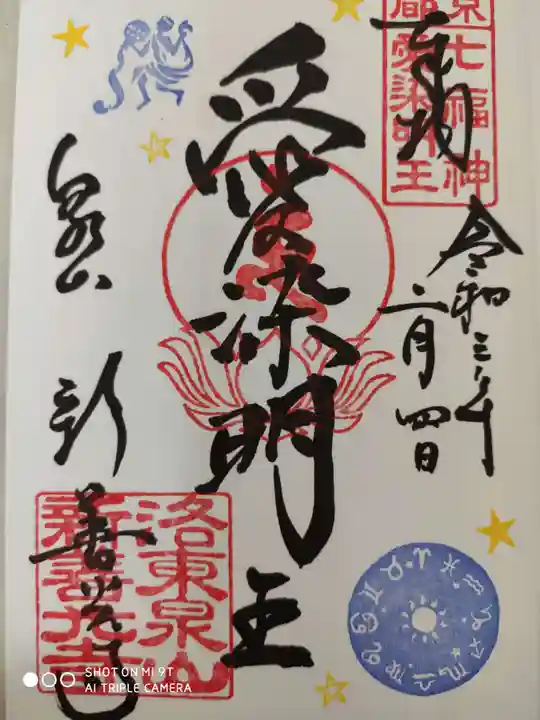 奉拝
京
七福神
都
愛染明王
令和三年
二月四日
愛染明王
泉山
新善光寺
洛東泉山
新善光寺
SHOT ON MI 9T
AI TRIPLE CAMERA